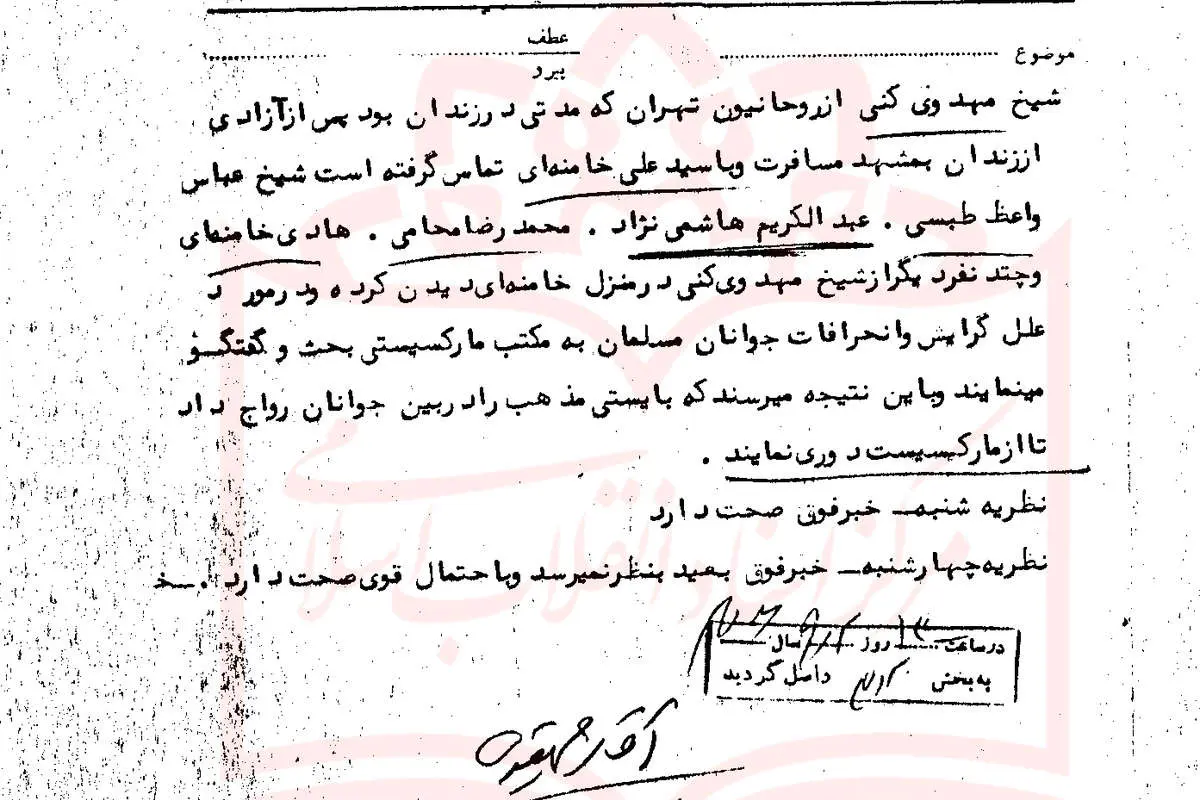 موضوع
عطف
پیرو
شیخ مهدوی کنی ازروحانیون تهران که مدتی درزندان بود پس ازآزادی
اززندان بمشهد مسافرت وباسید علی خامنه‌ای تماس گرفته است شیخ عباس
واعظ طبسی . عبدالکریم هاشمی نژاد . محمدرضامحامی . هادی خامنه‌ای
وچند نفردیگرازشیخ مهدوی‌کنی درمنزل خامنه‌ای‌دیدن کرده ودرمورد
علل گرایش وانحرافات جوانان مسلمان به مکتب مارکسیستی بحث و گفتگو
مینمایند وباین نتیجه میرسند که بایستی مذهب رادربین جوانان رواج داد
تاازمارکسیست دوری‌نمایند .
نظریه شنبه_ خبرفوق صحت دارد
نظریه‌چهارشنبه_ خبرفوق بعید بنظرنمیرسد وباحتمال قوی‌صحت دارد . خ
درساعت روز سال
به بخش ۳۱۲ واصل گردید
مرکز اسناد انقلاب اسلامی